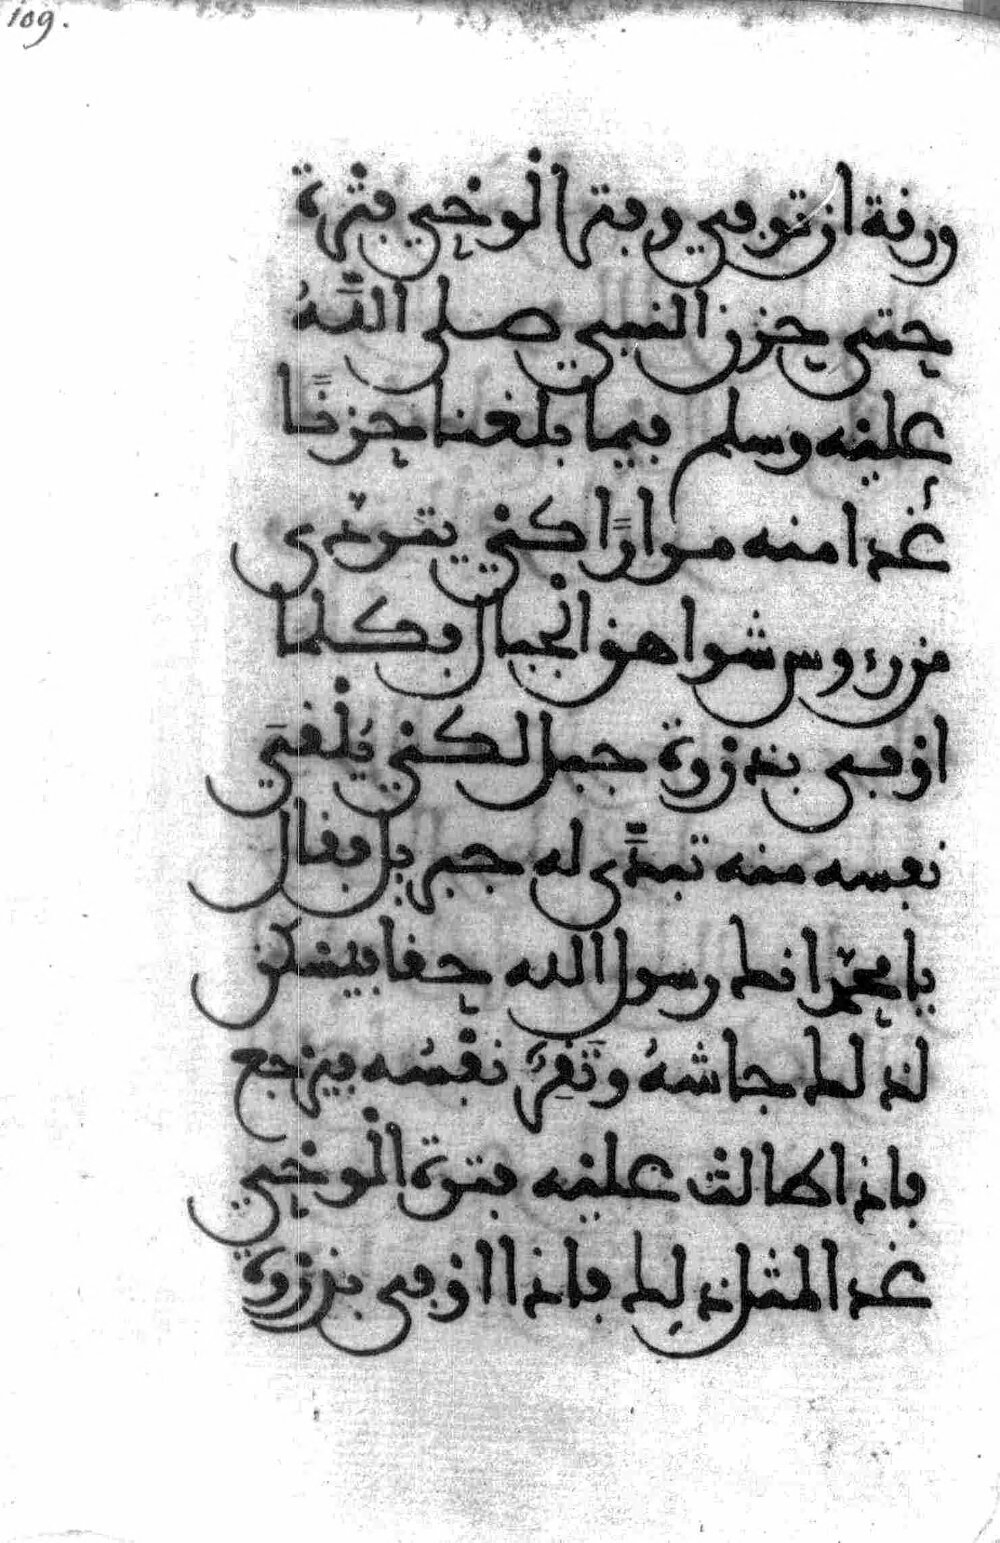 109.
ورقة ان توفي وفتر الوحي فترة
حتى حزن النبي صلى الله
عليه وسلم فيما بلغنا حزنًا
غدا منه مرارًا كي يتردى
من رءوس شواهق الجبال وكلما
اوفى بذروة جبل لكي يلقي
نفسه منه تبدّى له جبريل فقال
يا محمد انك رسول الله حقا فيسكن
لذلك جاشهُ وتَقِرُّ نفْسُه فيرجع
فاذا طالت عليه فترة الوحي
غدا لمثل ذلك فاذا اوفى بذروة